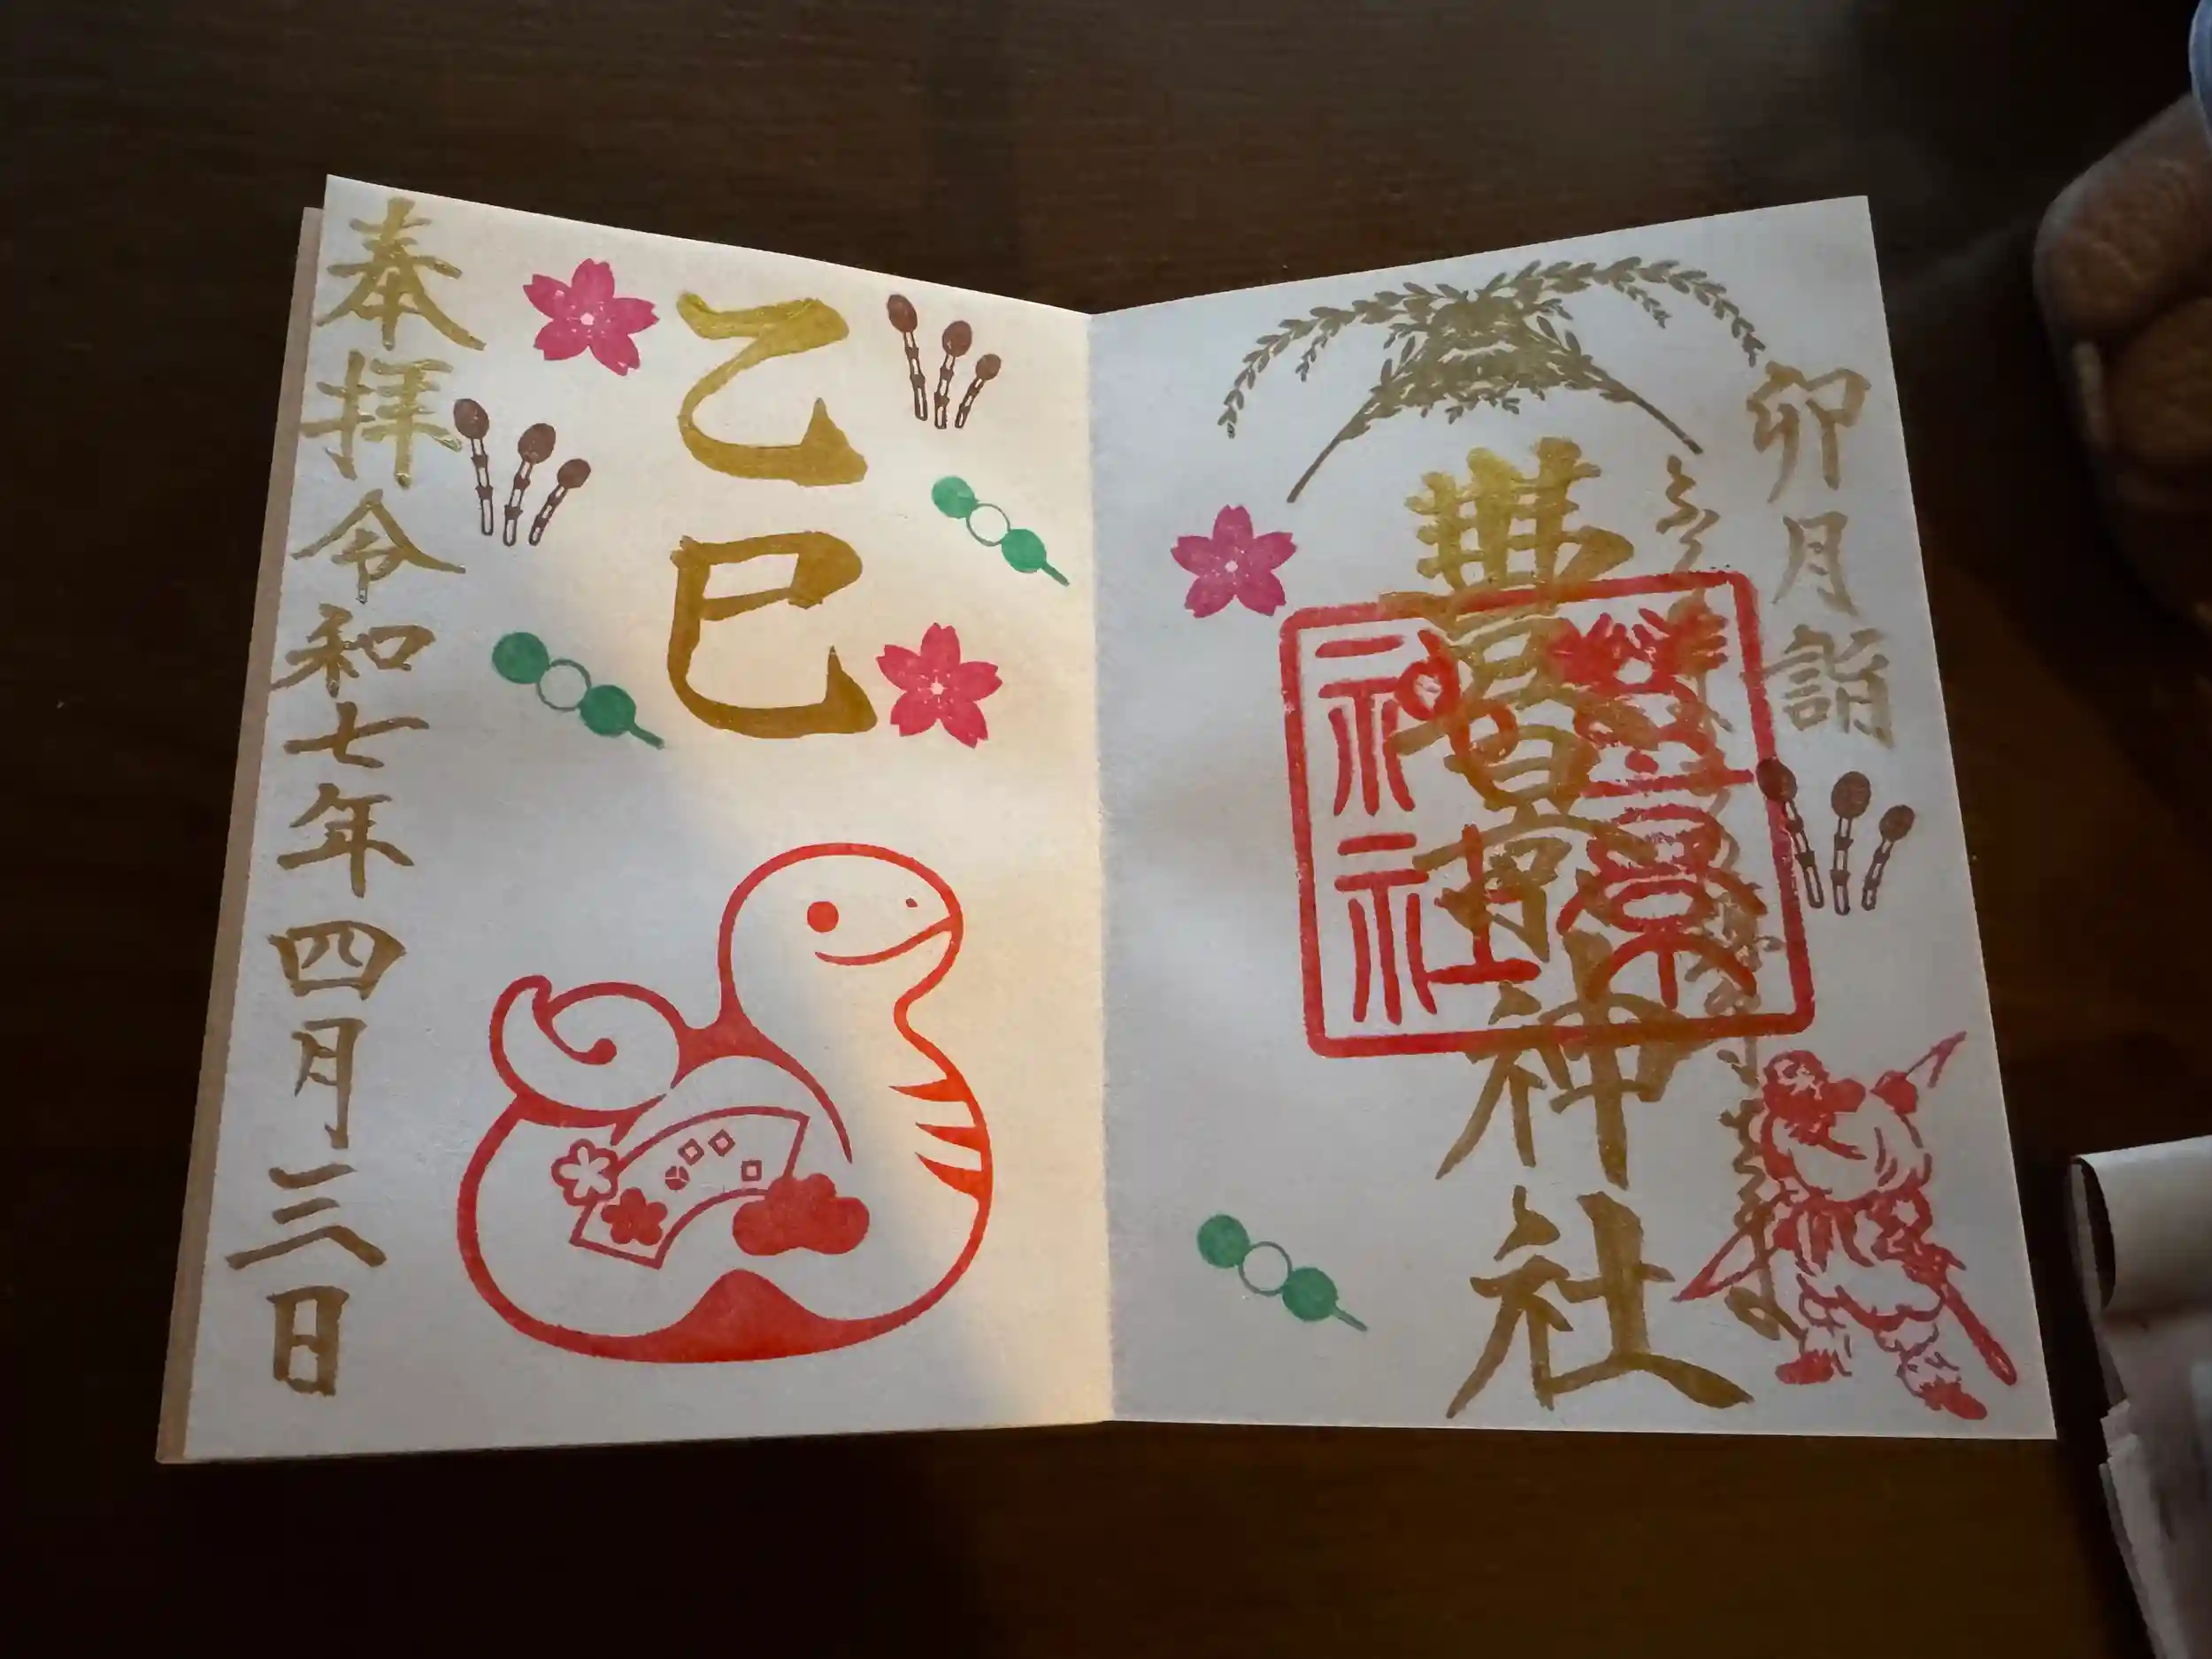 卯月詣
豐景神社
豐景
神社
乙巳
奉拝令和七年四月三日